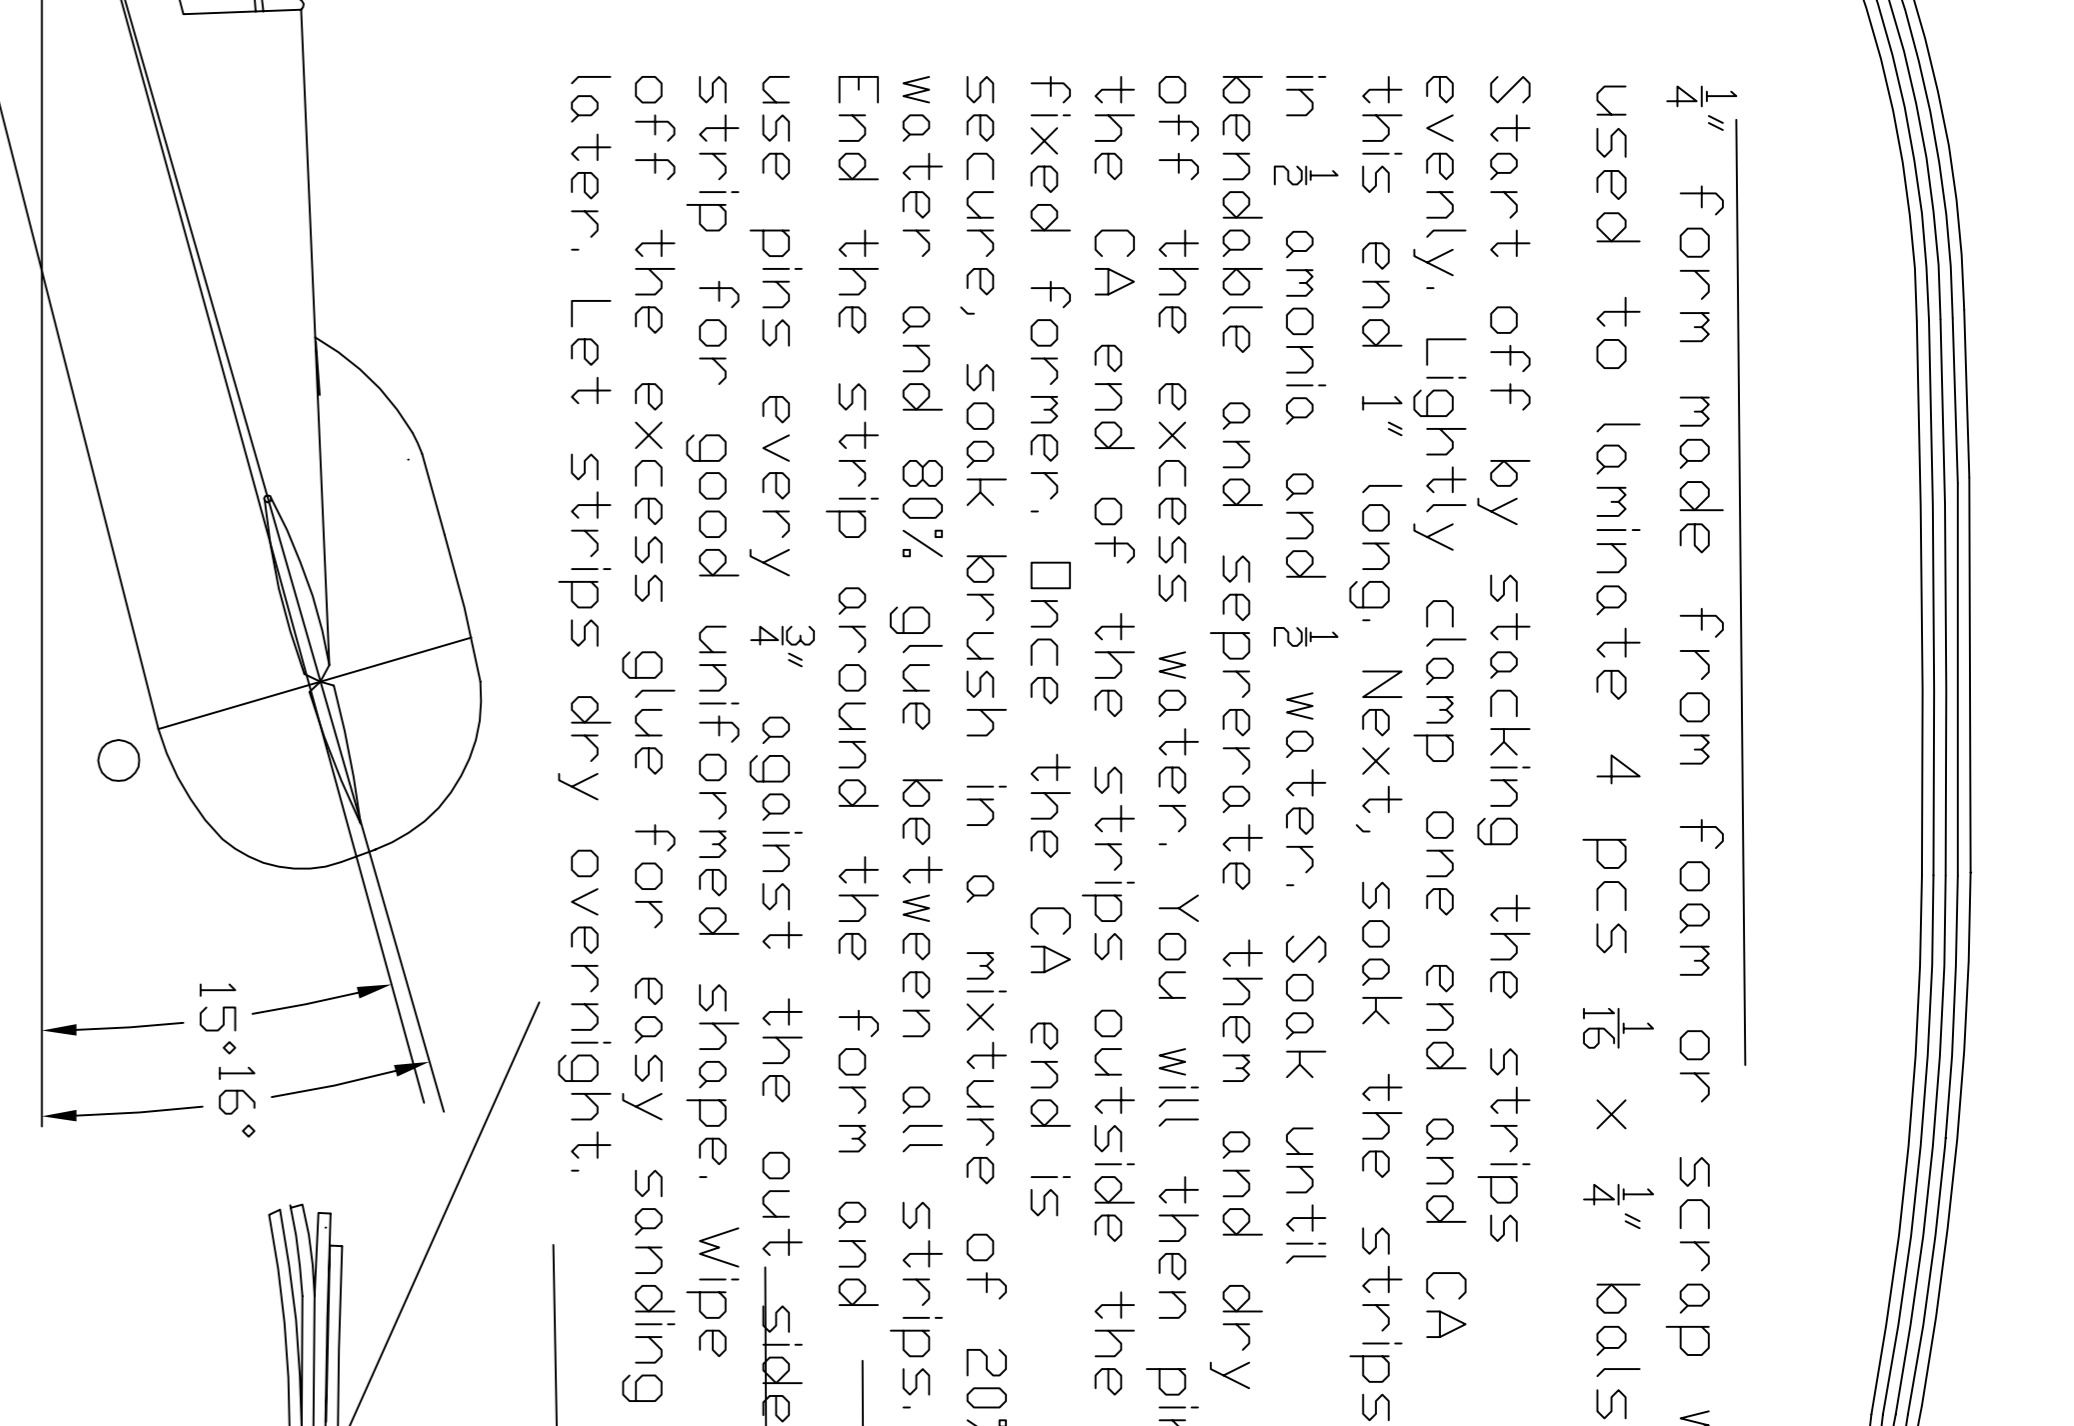 1/4" form made from foam or scrap
used to laminate 4 pcs 1/16 x 1/4" bals
Start off by stacking the strips
evenly. Lightly clamp one end and CA
this end 1" long. Next, soak the strips
in 1/2 amonia and 1/2 water. Soak until
bendable and seprerate them and dry
off the excess water. You will then pin
the CA end of the strips outside the
fixed former. Once the CA end is
secure, soak brush in a mixture of 20%
water and 80% glue between all strips.
End the strip around the form and
use pins every 3/4" against the out side
strip for good uniformed shape. Wipe
off the excess glue for easy sanding
later. Let strips dry overnight.
15°
16°